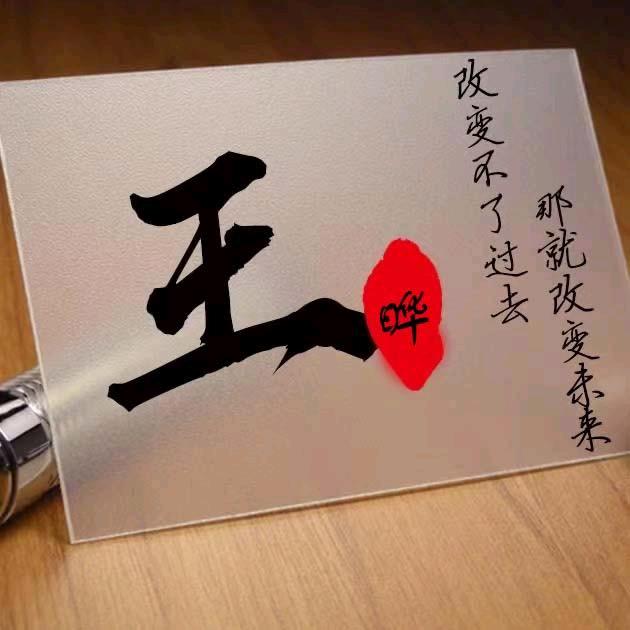 王
晔
改变不了过去
那就改变未来